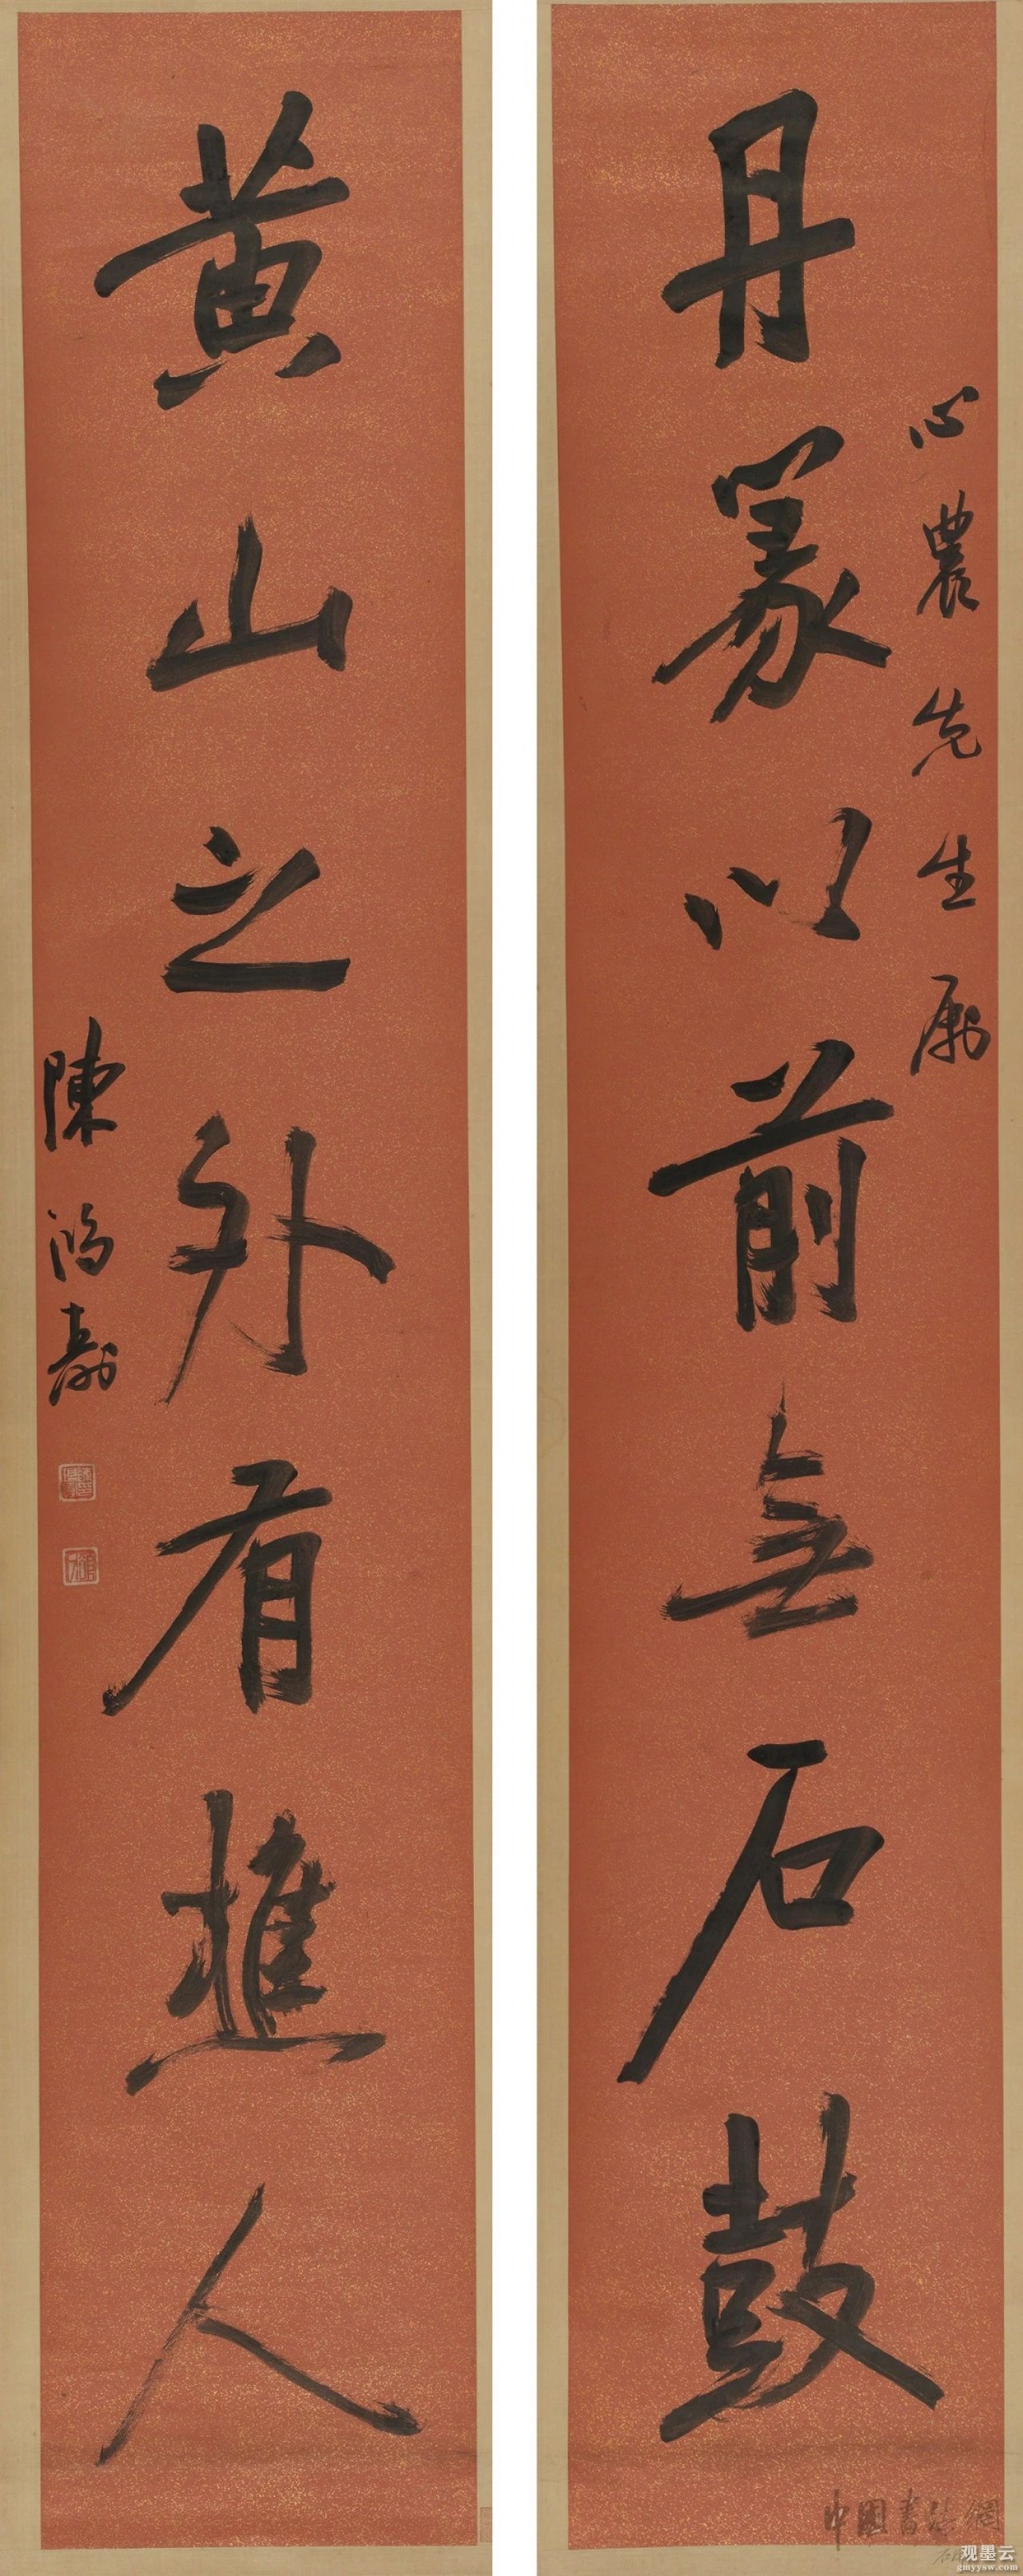 丹篆以前無石鼓
心農先生屬
黄山之外有樵人
陳鴻壽
中國書法網
观墨云
gmyysw.com